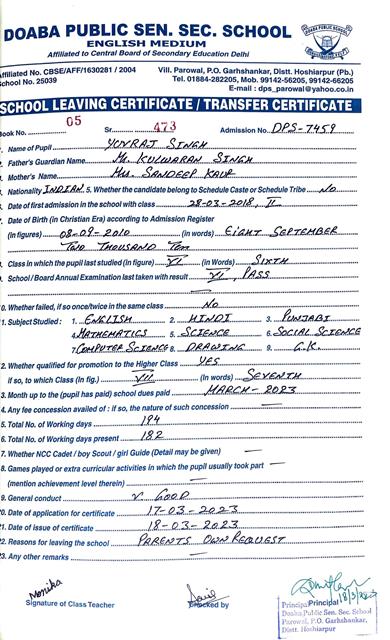 DOABA PUBLIC SEN. SEC. SCHOOL
ENGLISH MEDIUM
Affiliated to Central Board of Secondary Education Delhi
Affiliated No. CBSE/AFF/1630281 / 2004
School No. 25039
Vill. Parowal, P.O. Garhshankar, Distt. Hoshiarpur (Pb.)
Tel. 01884-282205, Mob. 99142-56205, 99142-66205
E-mail : dps_parowal@yahoo.co.in
SCHOOL LEAVING CERTIFICATE / TRANSFER CERTIFICATE
Book No. 05 Sr. 473 Admission No. DPS-7459
Name of Pupil YUVRAJ SINGH
Father's Guardian Name Mr. KULWARAN SINGH
Mother's Name Mrs. SANDEEP KAUR
Nationality INDIAN 5. Whether the candidate belong to Schedule Caste or Schedule Tribe NO
Date of first admission in the school with class 28-03-2018, II
Date of Birth (in Christian Era) according to Admission Register
(In figures) 08-09-2010 (in words) EIGHT SEPTEMBER
TWO THOUSAND TEN
Class in which the pupil last studied (In figure) VI (in Words) SIXTH
School / Board Annual Examination last taken with result VI, PASS
0. Whether failed, if so once/twice in the same class NO
1. Subject Studied : 1. ENGLISH 2. HINDI 3. PUNJABI
4. MATHEMATICS 5. SCIENCE 6. SOCIAL SCIENCE
7. COMPUTER SCIENCE 8. DRAWING 9. G.K.
2. Whether qualified for promotion to the Higher Class YES
if so, to which Class (in Fig.) VII (In words) SEVENTH
3. Month up to the (pupil has paid) school dues paid MARCH-2023
4. Any fee concession availed of : if so, the nature of such concession —
5. Total No. of Working days 194
6. Total No. of Working days present 182
7. Whether NCC Cadet / boy Scout / girl Guide (Detail may be given) —
8. Games played or extra curricular activities in which the pupil usually took part
(mention achievement level therein) —
9. General conduct V. GOOD
20. Date of application for certificate 17-03-2023
21. Date of issue of certificate 18-03-2023
22. Reasons for leaving the school PARENTS OWN REQUEST
23. Any other remarks —
Monika
Signature of Class Teacher
Checked by
18/3/2023
Principal Principal
Doaba Public Sen. Sec. School
Parowal, P.O. Garhshankar,
Distt. Hoshiarpur